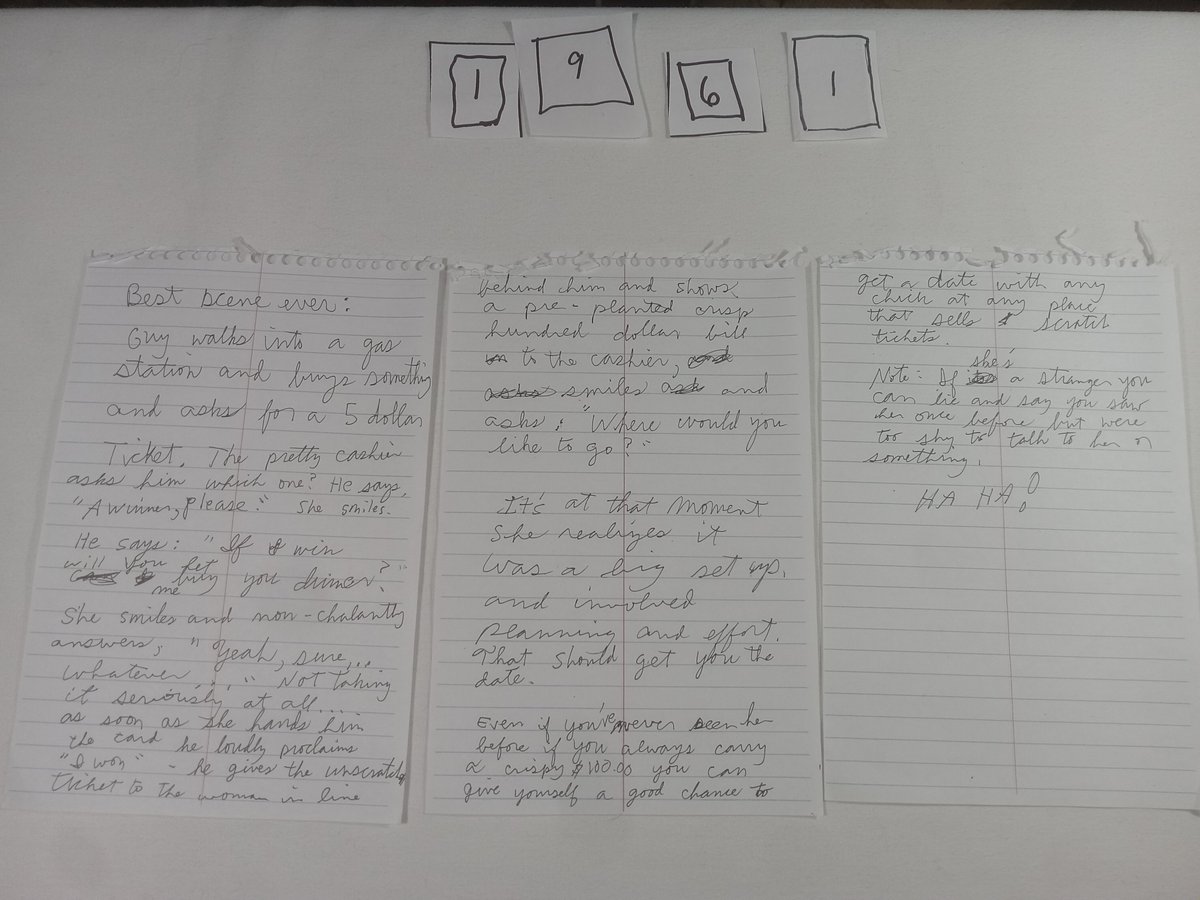 1 9 6 1
Best scene ever:
Guy walks into a gas
station and buys something
and asks for a 5 dollar
Ticket. The pretty cashier
asks him which one? He says,
"A winner, please." She smiles.
He says: "If I win
will you let
me buy you dinner?"
She smiles and non-chalantly
answers, "Yeah, sure...
whatever...," Not taking
it seriously at all...
as soon as she hands him
the card he loudly proclaims
"I won" - he gives the unscratched
ticket to the woman in line
behind him and shows
a pre-planted crisp
hundred dollar bill
to the cashier,
smiles and
asks: "Where would you
like to go?"
It's at that moment
She realizes it
was a big set up,
and involved
planning and effort.
That should get you the
date.
Even if you've never seen her
before if you always carry
a crispy $100.00 you can
give yourself a good chance to
get a date with any
chick at any place
that sells scratch
tickets.
she's
Note: If a stranger you
can lie and say you saw
her once before but were
too shy to talk to her or
something.
HA HA!